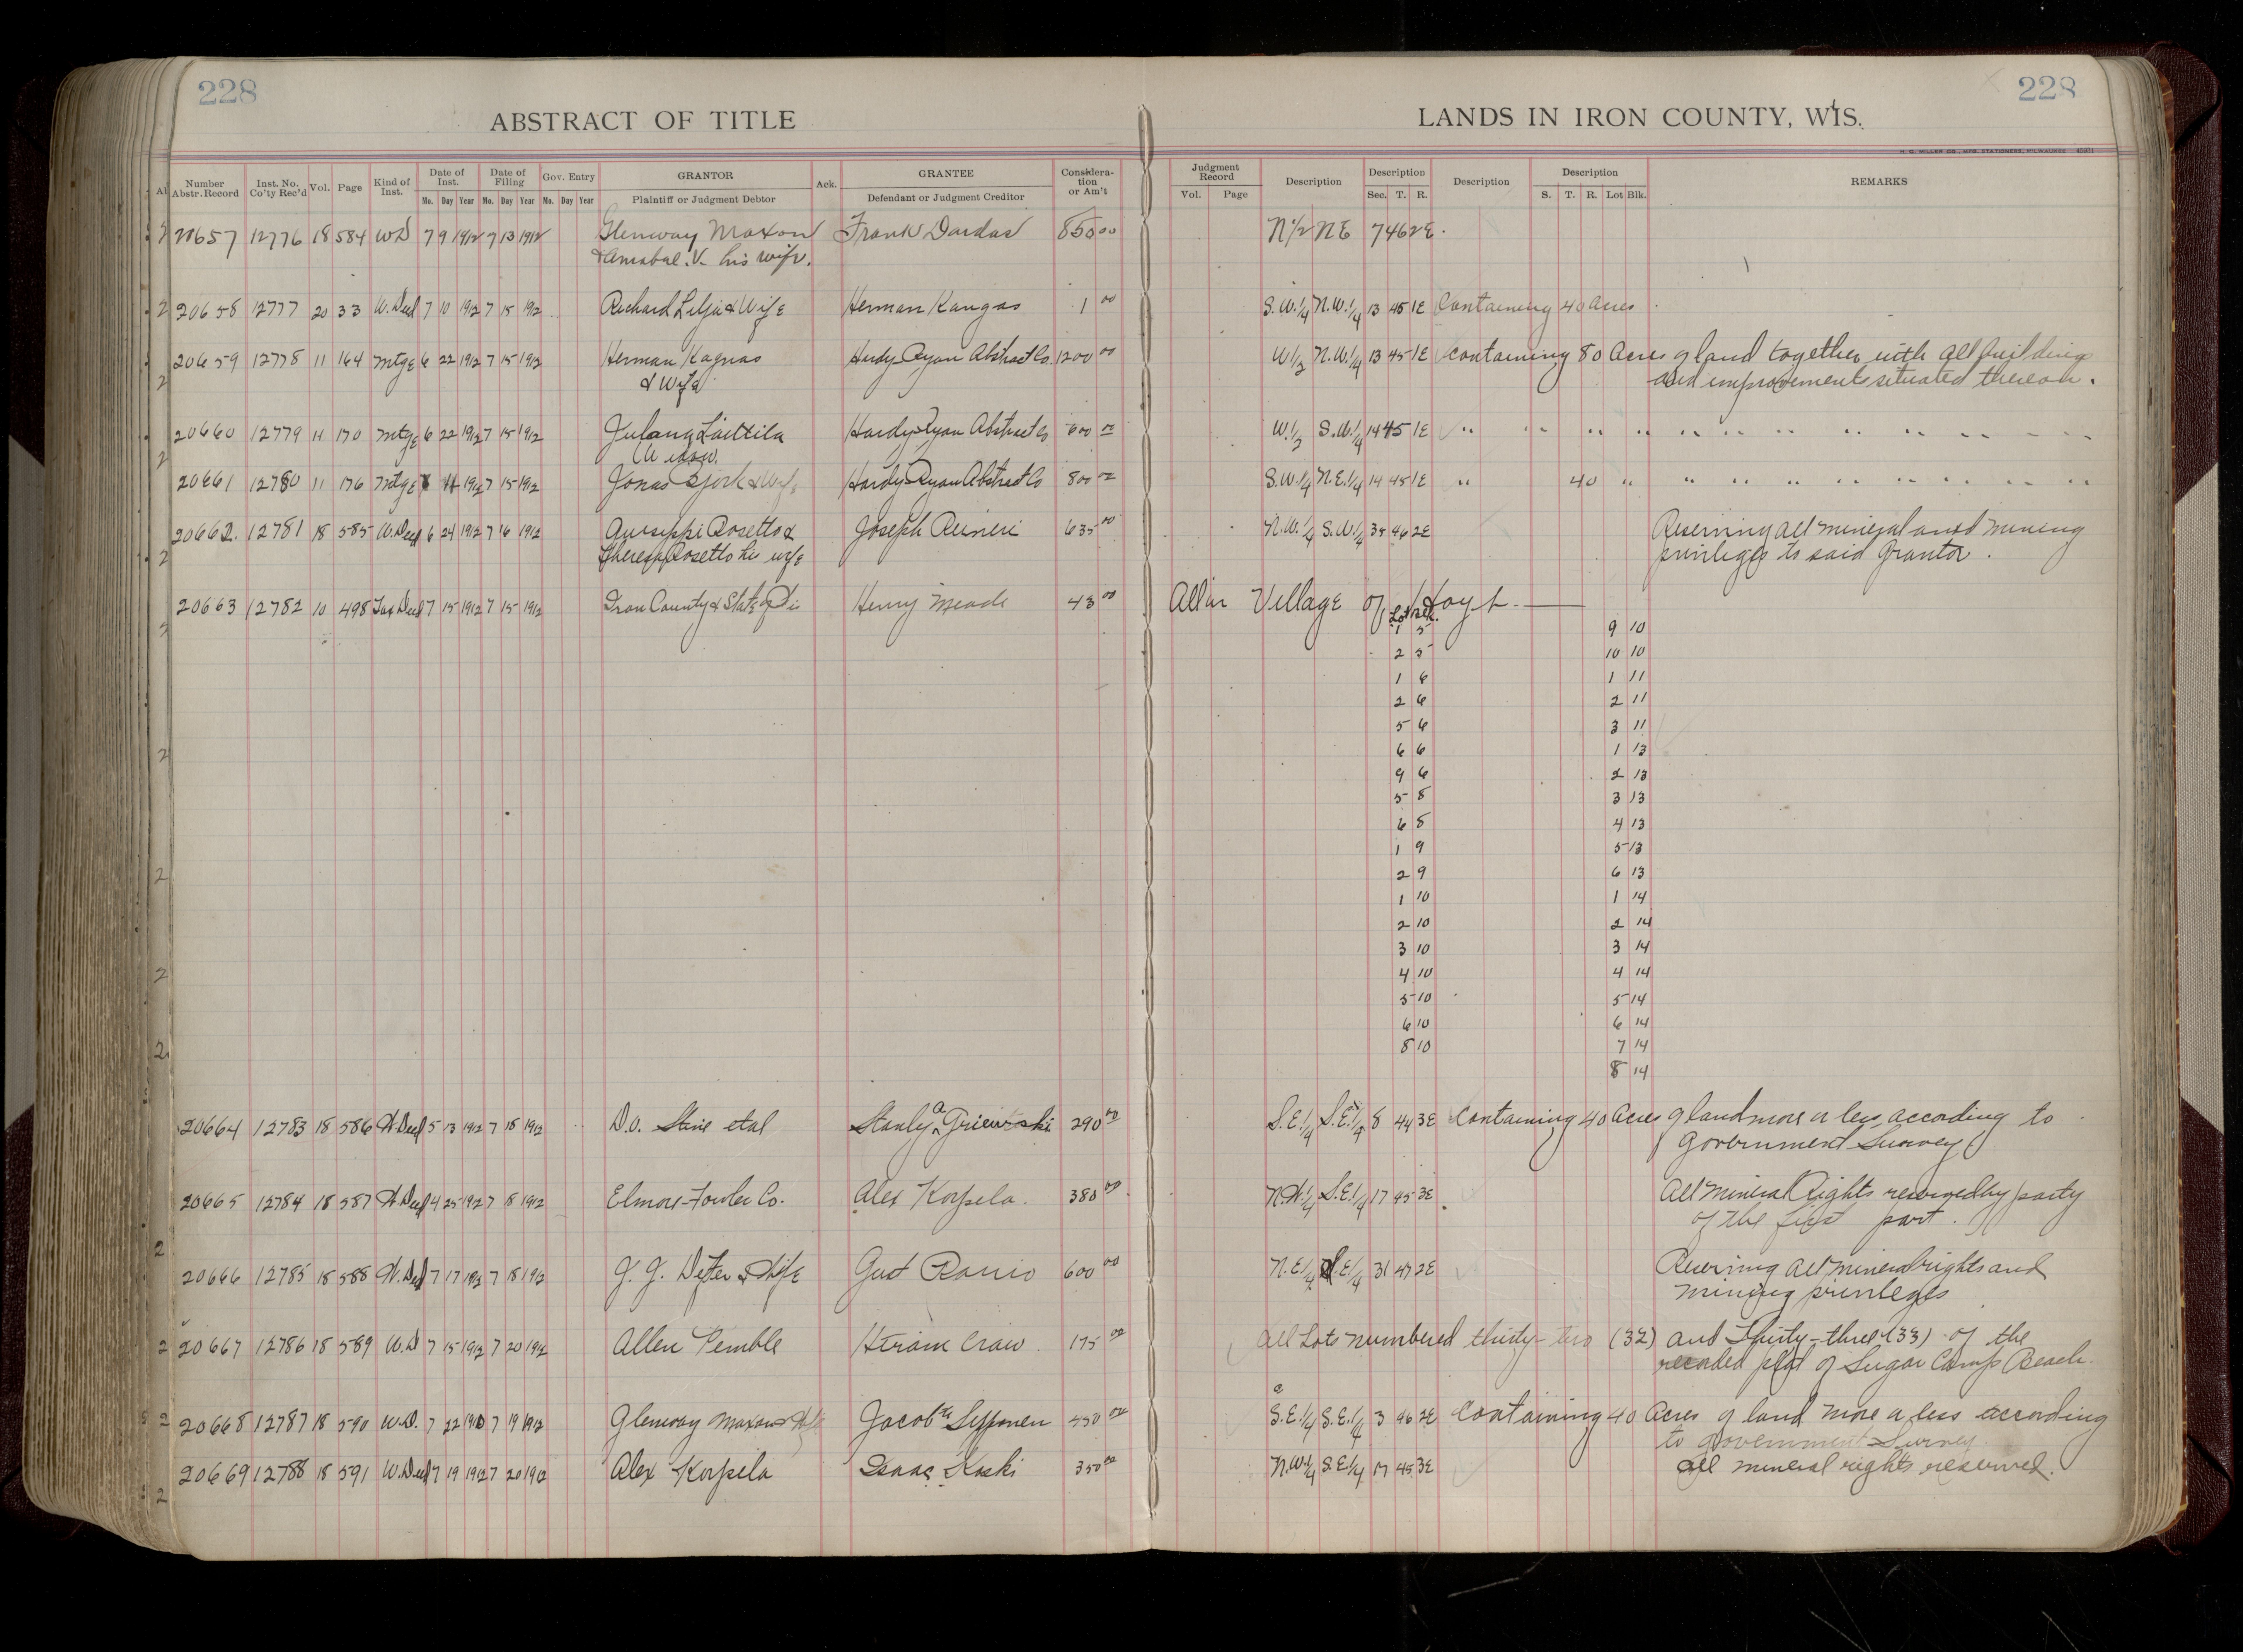 228
228
ABSTRACT OF TITLE
LANDS IN IRON COUNTY, WIS.
H. G. MILLER CO., MFG. STATIONERS, MILWAUKEE
Number Abstr. Record Inst. No. Co'ty Rec'd Vol. Page Kind of Inst. Date of Inst. Mo. Day Year Date of Filing Mo. Day Year Gov. Entry Mo. Day Year GRANTOR Plaintiff or Judgment Debtor Ack. GRANTEE Defendant or Judgment Creditor Considera-tion or Am't Judgment Record Vol. Page Description Description Sec. T. R. Description Description S. T. R. Lot Blk. REMARKS
20657 12776 18 584 WD 7 9 1912 7 13 1912 Glenway Maxon Frank Dardas 850 00 N 1/2 NE 7 46 2E
& Amabal. V. his wife.
20658 12777 20 33 W. Deed 7 10 1912 7 15 1912 Richard Lilja & Wife Herman Kangas 1 00 S.W. 1/4 N.W. 1/4 13 45 1E Containing 40 acres
20659 12778 11 164 Mtge 6 22 1912 7 15 1912 Herman Kagnas Hardy-Ryan Abstract Co. 1200 00 W 1/2 N.W. 1/4 13 45 1E containing 80 Acres of land together with all buildings
& Wife and improvements situated thereon.
20660 12779 11 170 Mtge 6 22 1912 7 15 1912 Hardy-Ryan Abstract Co 600 00 W. 1/2 S.W. 1/4 14 45 1E " " " " " " " " " " " " "
20661 12780 11 176 Mtge 1912 7 15 1912 Jonas Bjork & Wife Hardy-Ryan Abstract Co 800 00 S.W. 1/4 N.E. 1/4 14 45 1E " 40 " " " " " " " " " "
20662. 12781 18 585 W. Deed 6 24 1912 7 16 1912 Guiseppi Rosetto & Joseph Reineri 635 00 N.W. 1/4 S.W. 1/4 35 46 2E Reserving all mineral and mining
Theresa Rosetto his wife privileges to said Grantor.
20663 12782 10 498 Tax Deed 7 15 1912 7 15 1912 Iron County & State of Henry Meade 43 00 All in Village of Hoyt.
Lot Blk.
1 5 9 10
2 5 10 10
1 6 1 11
2 6 2 11
5 6 3 11
6 6 1 13
9 6 2 13
5 8 3 13
6 8 4 13
1 9 5 13
2 9 6 13
1 10 1 14
2 10 2 14
3 10 3 14
4 10 4 14
5 10 5 14
6 10 6 14
8 10 7 14
8 14
20664 12783 18 586 W. Deed 5 13 1912 7 18 1912 D.O. Stine et al Stanly 290 00 S.E. 1/4 S.E. 1/4 8 44 3E Containing 40 Acres of land more or less according to
Government Survey
20665 12784 18 587 W. Deed 4 25 1912 7 18 1912 Elmore-Fowler Co. Alex Korpela. 380 00 N.W. 1/4 S.E. 1/4 17 45 3E All Mineral Rights reserved by party
of the first part.
20666 12785 18 588 W. Deed 7 17 1912 7 18 1912 & Wife Gust 600 00 N.E. 1/4 31 47 2E Reserving all mineral rights and
mining privileges
20667 12786 18 589 W.D 7 15 1912 7 20 1912 Allen Pemble Hiram Craw. 175 00 All Lots numbered thirty-two (32) and Thirty-three (33) of the
recorded plat of Sugar Camp Beach.
20668 12787 18 590 W.D. 7 22 7 19 1912 Glenway Maxon & Wife Jacob Sepponen 450 00 S.E. 1/4 S.E. 1/4 3 46 2E Containing 40 Acres of land more or less according
to government Survey
20669 12788 18 591 W. Deed 7 19 1912 7 20 1912 Alex Korpela Isaac Koski 350 00 N.W. 1/4 S.E. 1/4 17 45 3E All mineral rights reserved.